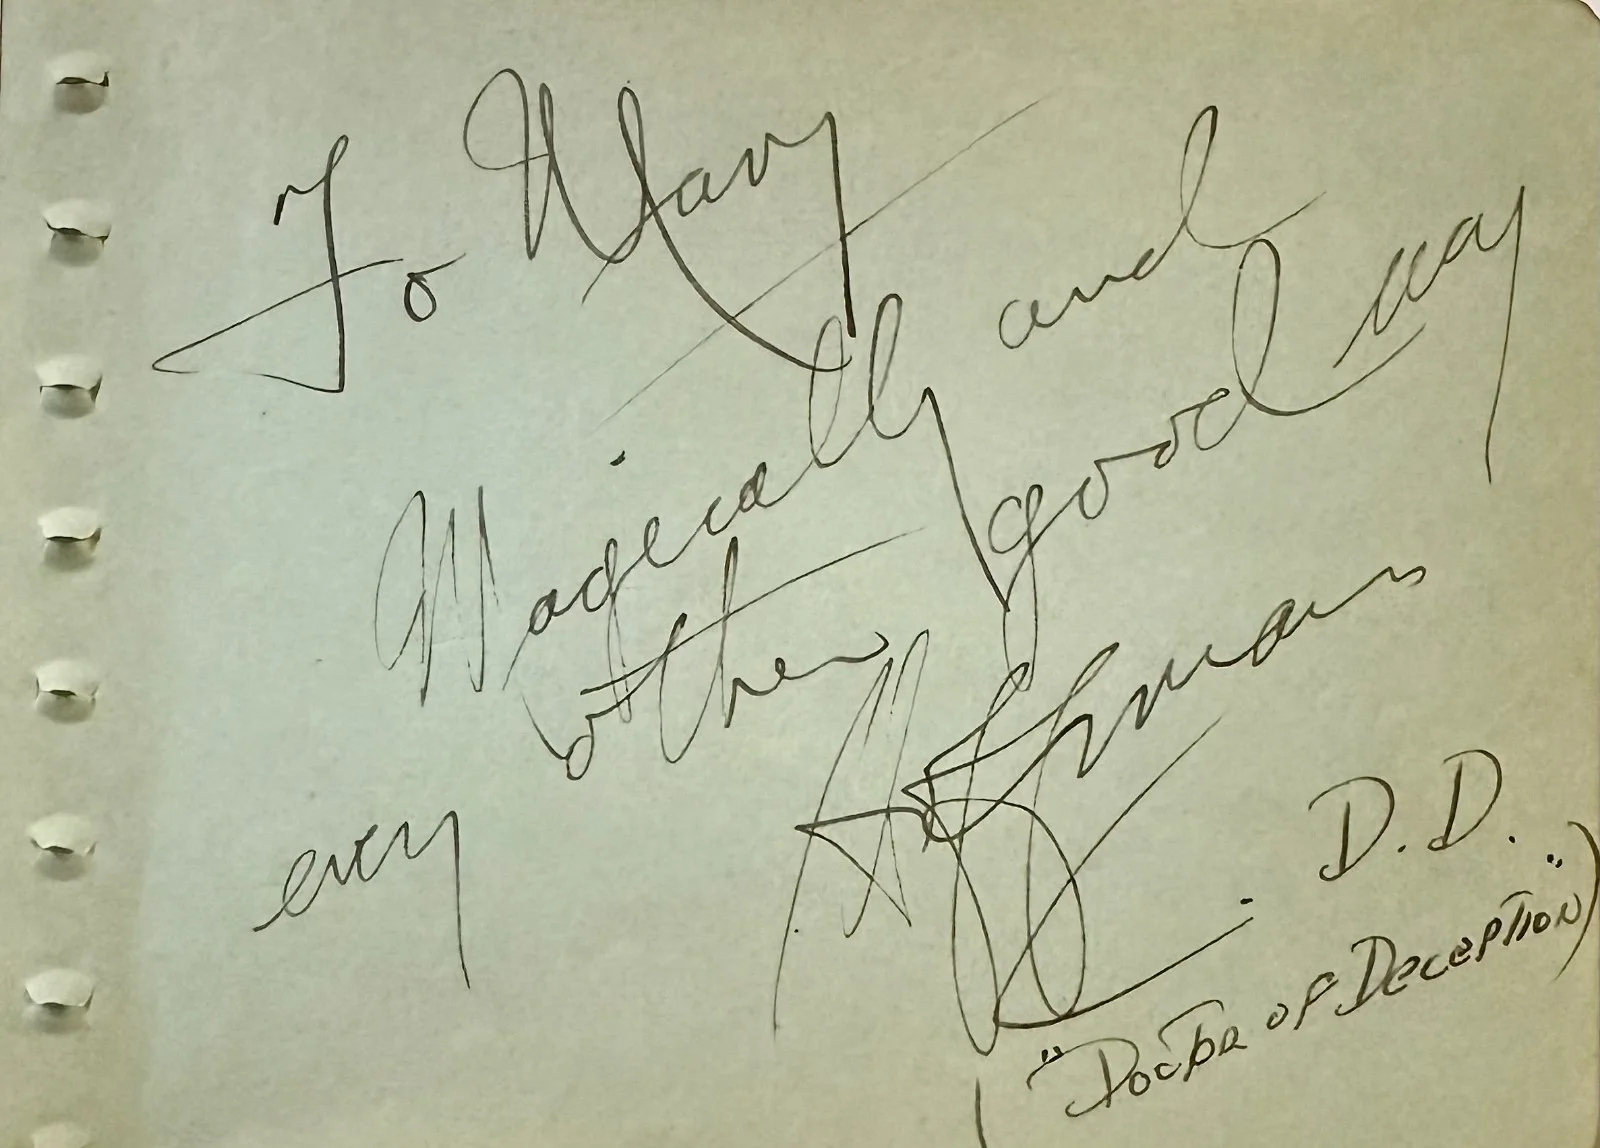 To Mary
Magically and
every other good way
Hoffman
D.D.
("Doctor of Deception")